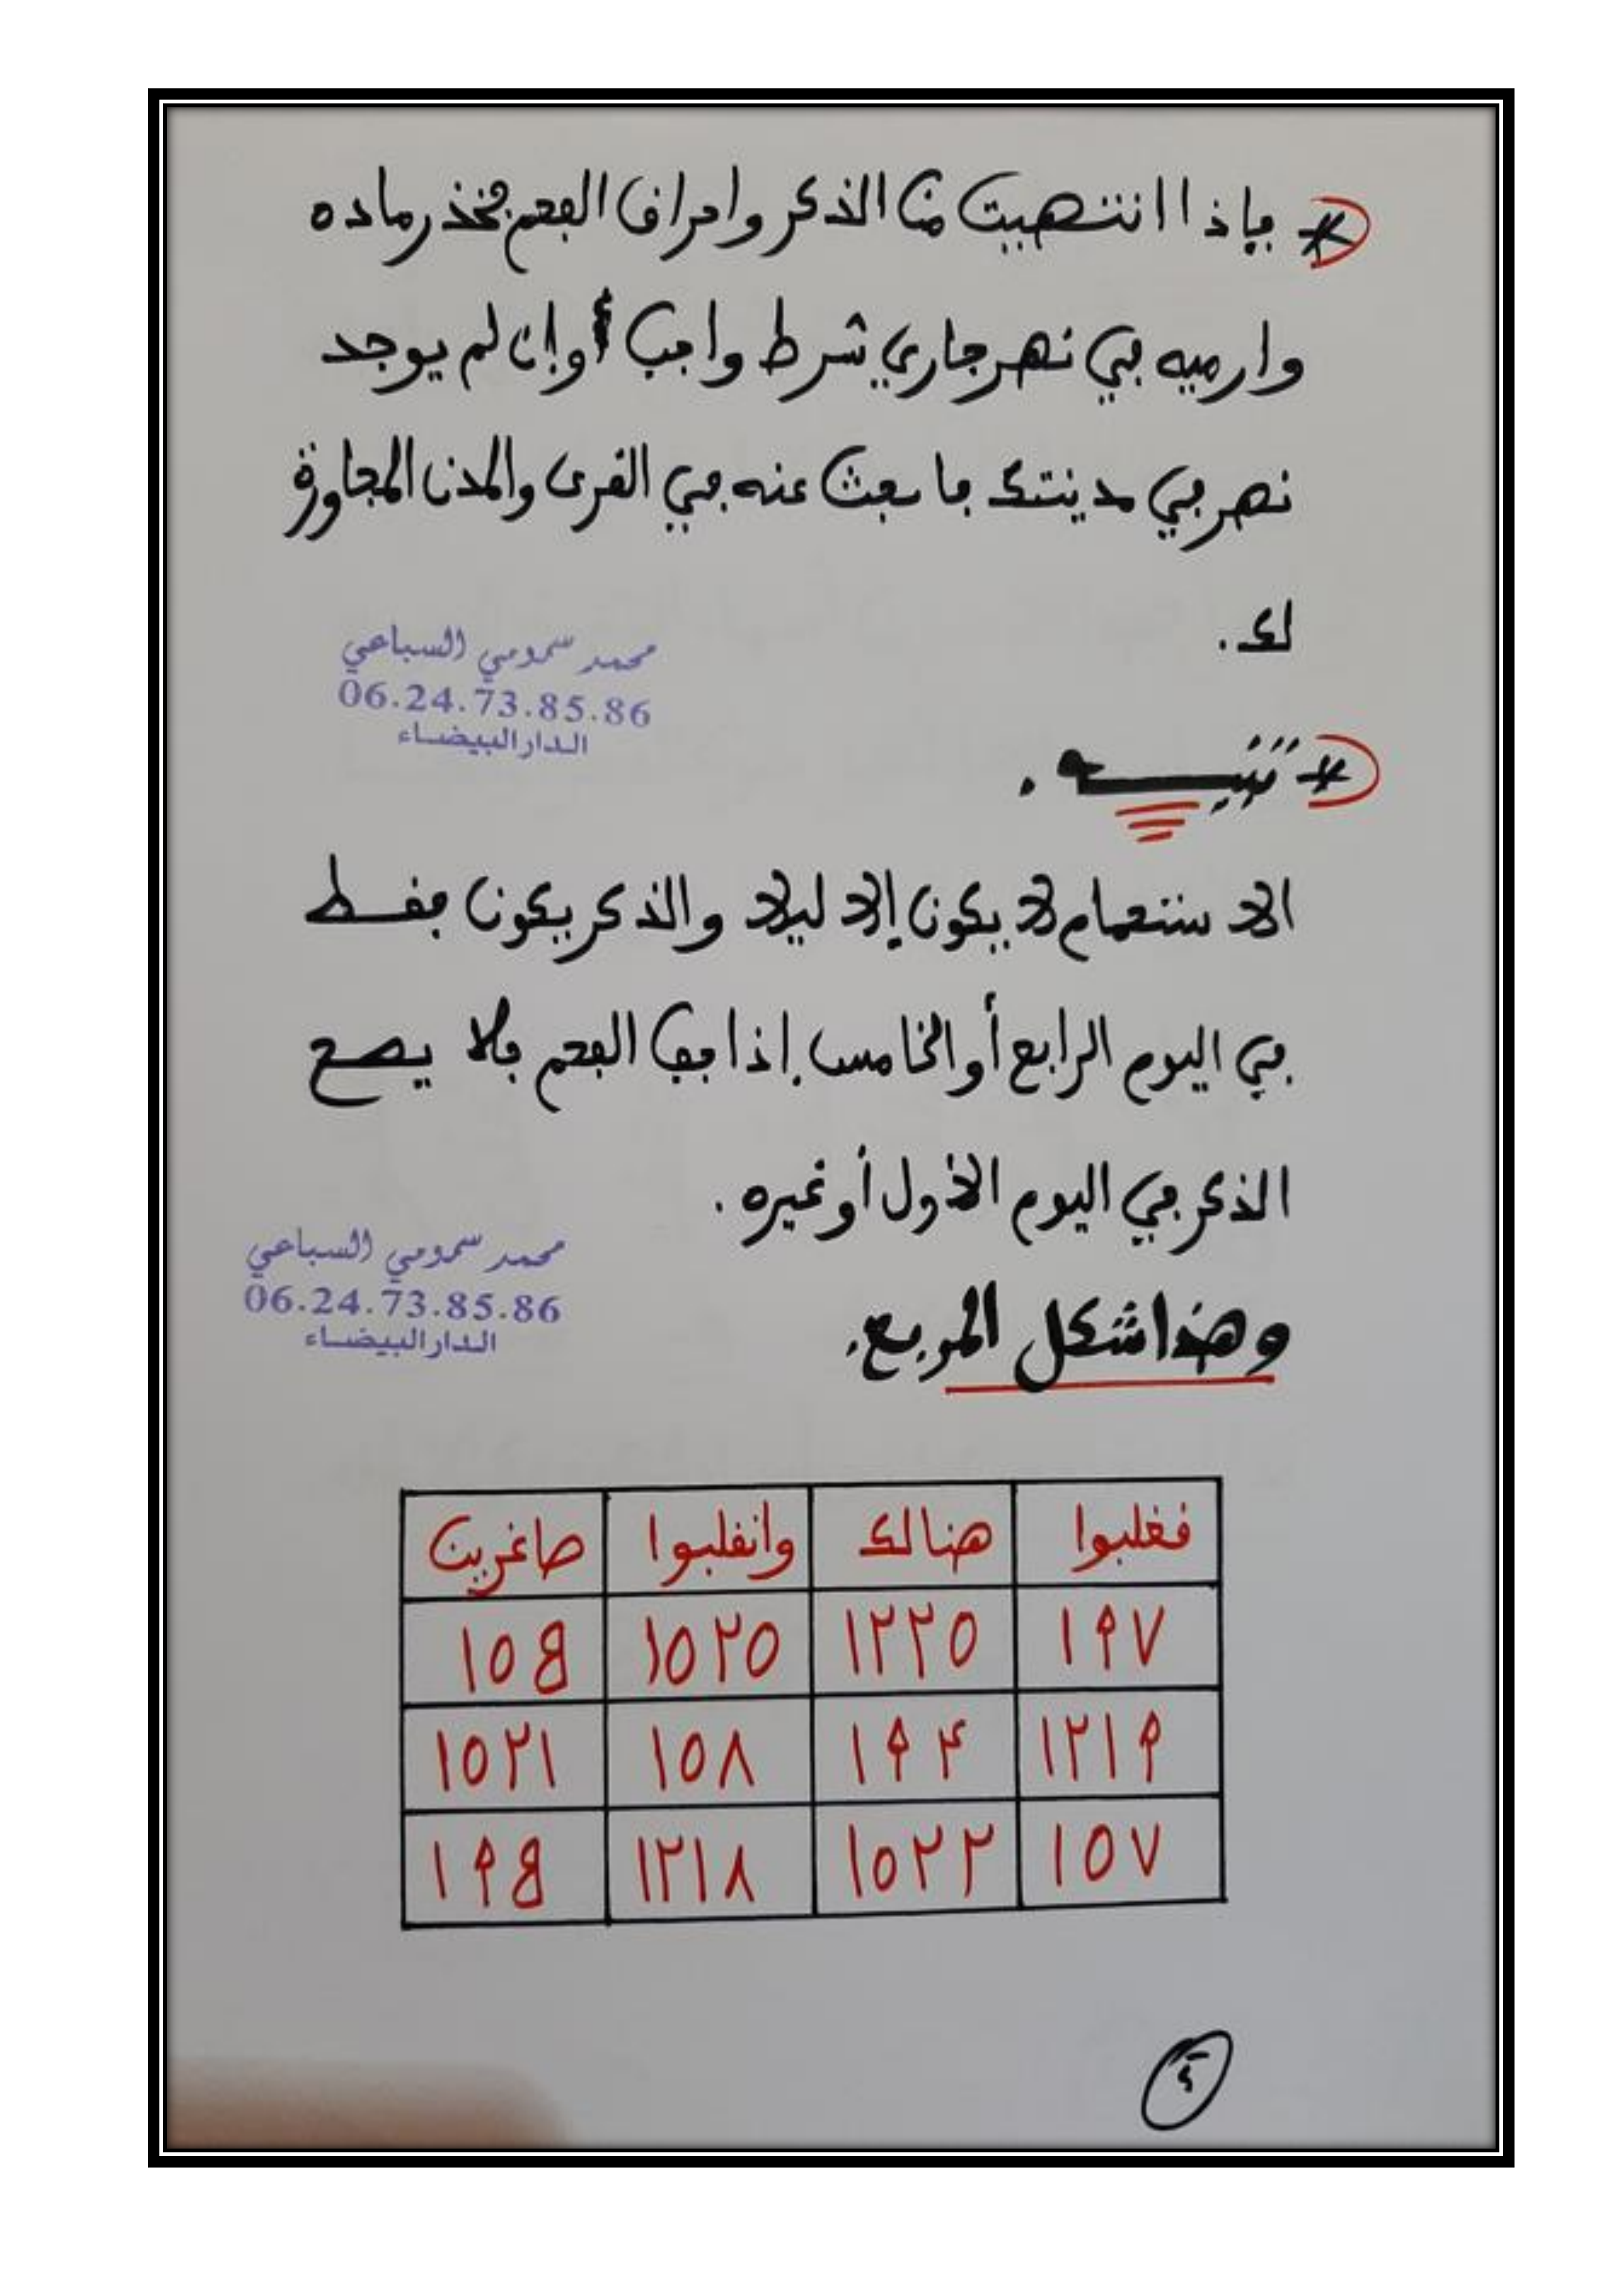 * فإذا انتهيت من الذكر واحراق الفحم فخذ رماده
وارميه في نهر جاري شرط واجب وإن لم يوجد
نهر في مدينتك فابحث عنه في القرى والمدن المجاورة
لك.
محمد سمومي السباعي
06.24.73.85.86
الدار البيضاء
* تنبيه.
الاستحمام لا يكون إلا ليلا والذكر يكون فقط
في اليوم الرابع أو الخامس إذا جف الفحم فلا يصح
الذكر في اليوم الأول أو غيره.
محمد سمومي السباعي
06.24.73.85.86
الدار البيضاء
وهذا شكل المربع.
فغلبوا هنالك وانقلبوا صاغرين
١٩٧ ١٢٢٥ ١٥٢٥
١٢١٩ ١٩٤ ١٥٨ ١٥٢١
١٥٧ ١٥٢٢ ١٢١٨